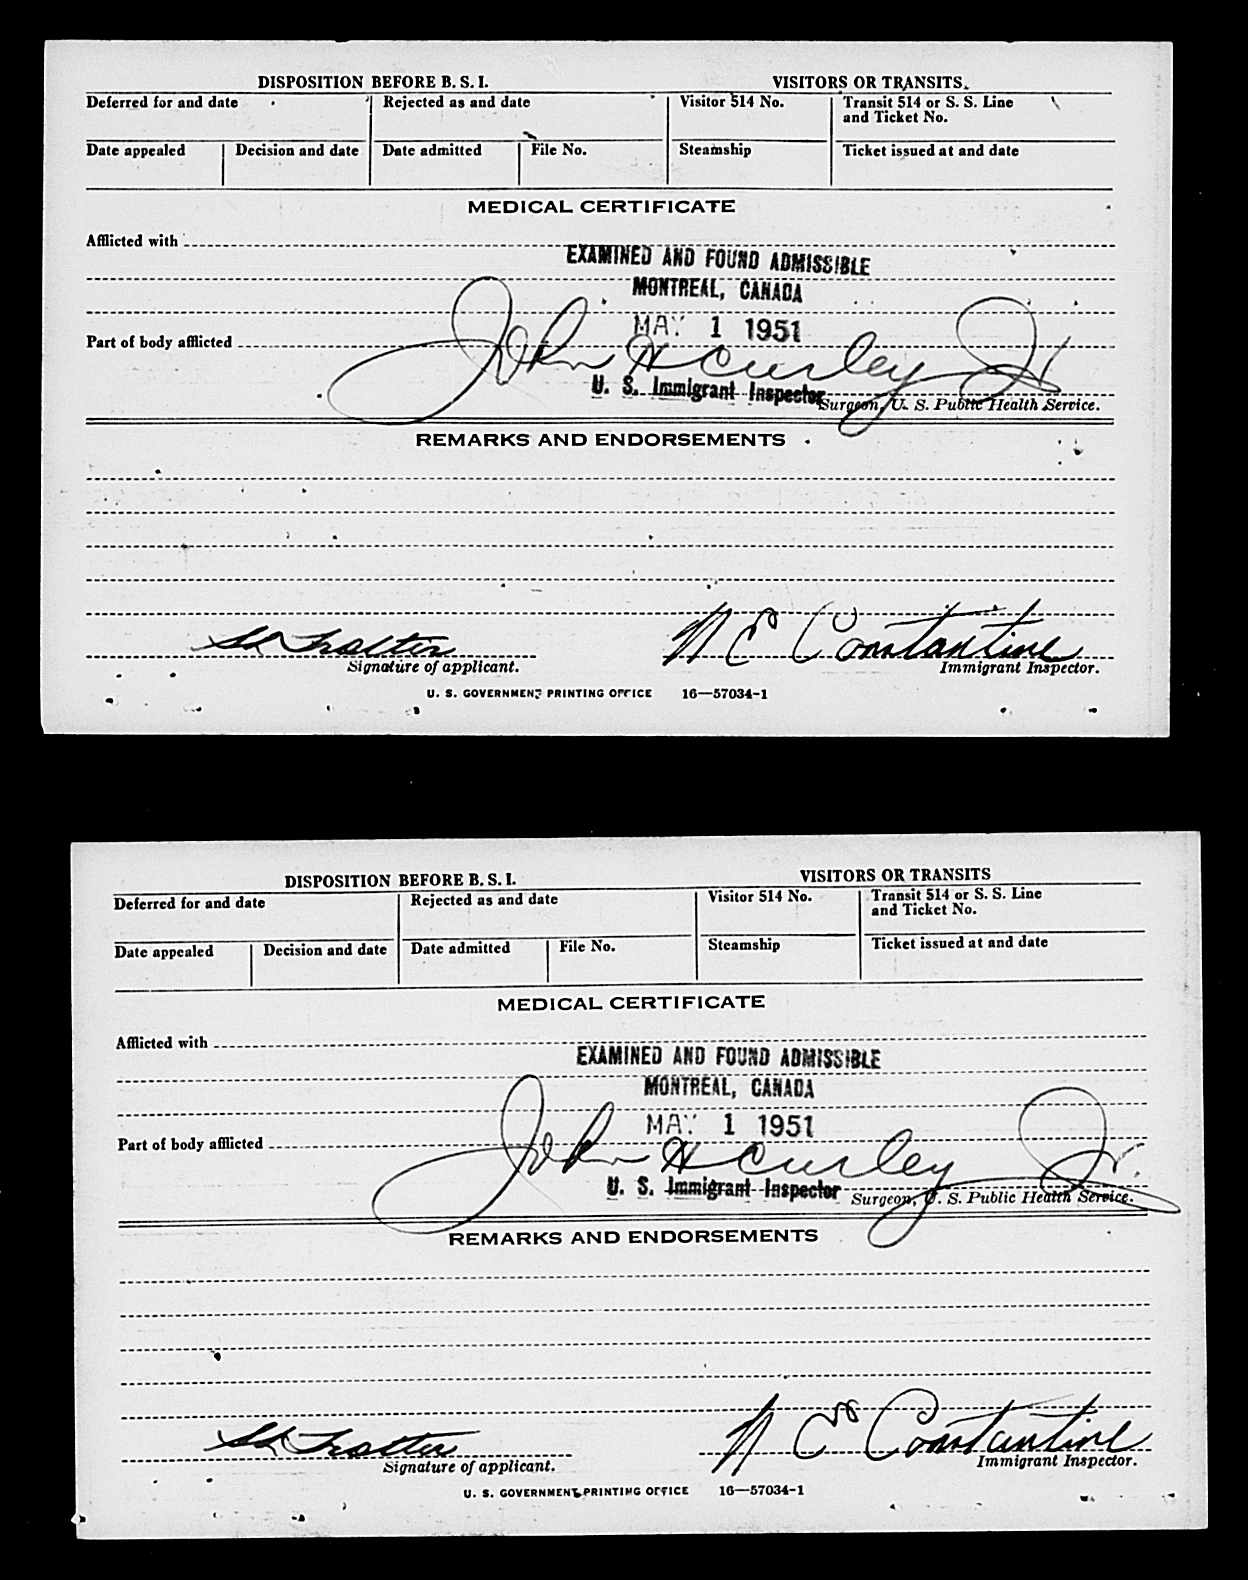 DISPOSITION BEFORE B. S. I. VISITORS OR TRANSITS.
Deferred for and date Rejected as and date Visitor 514 No. Transit 514 or S. S. Line
and Ticket No.
Date appealed Decision and date Date admitted File No. Steamship Ticket issued at and date
MEDICAL CERTIFICATE
Afflicted with
EXAMINED AND FOUND ADMISSIBLE
MONTREAL, CANADA
MAY 1 1951
Part of body afflicted
John H Curley Jr
U. S. Immigrant Inspector
Surgeon, U. S. Public Health Service.
REMARKS AND ENDORSEMENTS
Trotter N E Constantine
Signature of applicant. Immigrant Inspector.
U. S. GOVERNMENT PRINTING OFFICE 16—57034-1
DISPOSITION BEFORE B. S. I. VISITORS OR TRANSITS
Deferred for and date Rejected as and date Visitor 514 No. Transit 514 or S. S. Line
and Ticket No.
Date appealed Decision and date Date admitted File No. Steamship Ticket issued at and date
MEDICAL CERTIFICATE
Afflicted with
EXAMINED AND FOUND ADMISSIBLE
MONTREAL, CANADA
MAY 1 1951
Part of body afflicted
John H Curley Jr.
U. S. Immigrant Inspector
Surgeon, U. S. Public Health Service.
REMARKS AND ENDORSEMENTS
Trotter N E Constantine
Signature of applicant. Immigrant Inspector.
U. S. GOVERNMENT PRINTING OFFICE 16—57034-1